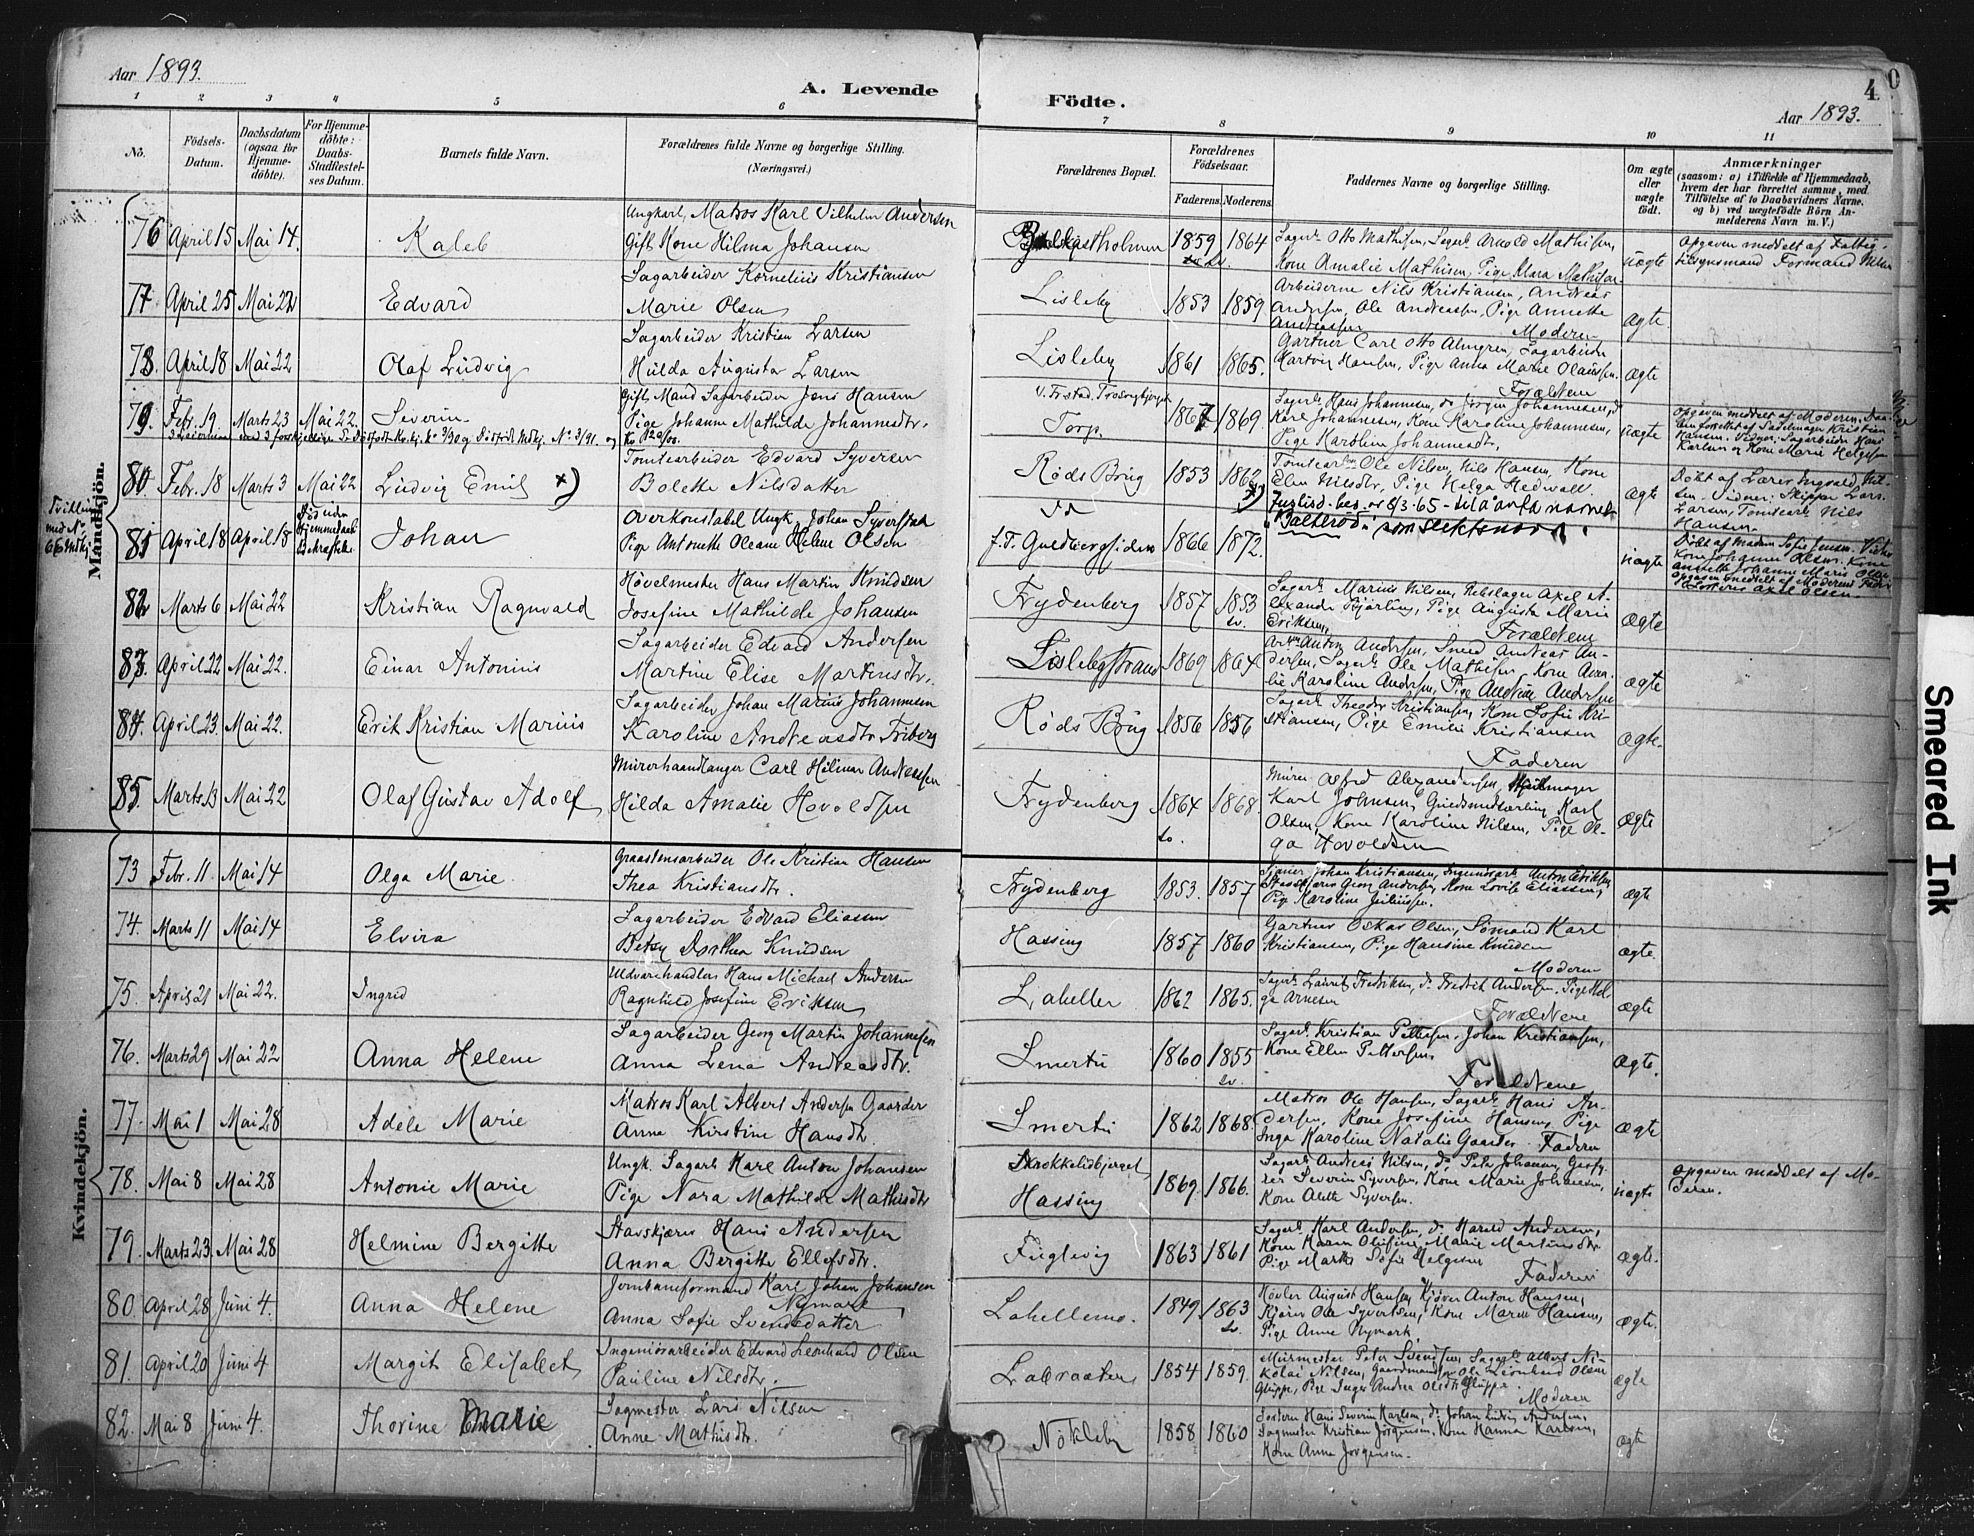 Aar 1893.
A. Levende
Födte.
4
0
Aar 1893.
1 2 3 4 5 6 7 8 9 10 11
No.
Födsels-Datum.
Daabsdatum (ogsaa for Hjemmedöbte).
For Hjemmedöbte: Daabs-Stadfæstelses Datum.
Barnets fulde Navn.
Forældrenes fulde Navne og borgerlige Stilling. (Næringsvei.)
Forældrenes Bopæl.
Forældrenes Födselsaar.
Faderens. Moderens.
Faddernes Navne og borgerlige Stilling.
Om ægte eller uægte födt.
Anmærkninger
(saasom: a) i Tilfælde af Hjemmedaab, hvem der har forrettet samme, med Tilföielse af to Daabsvidners Navne, og b) ved uægtefödte Börn Anmelderens Navn m. V.)
Mandkjön.
76 April 15 Mai 14. Kaleb
Ungkarl, Matros Karl Vilhelm Andersen
Gift Kone Hilma Johansen
1859 1864
Sagarb. Otto Mathisen, Sagarb. Arnold Mathisen,
Kone Amalie Mathisen, Pige Klara Mathisen
uægte
Opgaven meddelt af Fattig-
tilsynsmand Formand
77 April 25 Mai 22 Edvard
Sagarbeider Kornelius Kristiansen
Marie Olsen
Lisleby 1853 1859
Arbeiderne Nils Kristiansen, Andreas
Andersen, Ole Andreassen, Pige Annette
Andreassen Moderen
ægte
78. April 18 Mai 22 Olaf Ludvig
Sagarbeider Kristian Larsen
Hulda Augusta Larsen
Lisleby 1861 1865.
Gartner Carl Otto Almgren, Sagarbeider
Hartvig Hansen, Pige Anna Marie Olaussen.
Forældrene
ægte
79. Febr. 19. Marts 23 Mai 22. Severin
Gift Mand Sagarbeider Jens Hansen
Pige Johanne Mathilde Johannesdtr.
Torp. 1867 1869.
Sagarb. Hans Johannesen, do Jörgen Johannesen, do
Karl Johannesen, Kone Karoline Johannesen,
Pige Karoline Johannesdtr.
uægte
Opgaven meddelt af Moderen. Daa-
ben forrettet af Sadelmager Kristian
Hansen. Vidner: Sagarbeider Hans
Karlsen og Kone Marie Helgesen
80. Febr. 18 Marts 3 Mai 22 Ludvig Emil x)
Tomtearbeider Edvard Syversen
Bolette Nilsdatter
Röds Brug 1853 1862
Tomtearb. Ole Nilsen, Nils Hansen, Kone
Elen Nilsdtr, Pige Helga Hedwall.
x) Justisd. bev. av 6/3-65 - til å anta navnet
"Balteröd" som slektsnavn.
ægte
Döbt af Lærer Ingvald Nil-
sen. Vidner: Skipper Lars
Larsen, Tomtearb. Nils
Hansen.
Tvilling
med No
66 Kvkj.
81 April 18 April 18
Död uden
Hjemmedaab
Bekræftelse
Johan
Overkonstabel Ungk. Johan Syversen
Pige Antonette Oleane Helene Olsen
f. T. Guldbergsiden 1866 1872.
uægte
Döbt af Madam Sofie Jensen. Vidner
Kone Johanne Olsen. Kone
Annette Johanne Marie Olsen
Opgaven meddelt af Moderens Fader
Axel Olsen.
82 Marts 6 Mai 22 Kristian Ragnvald
Hövelmester Hans Martin Knudsen
Josefine Mathilde Johansen
Frydenberg 1857 1853
Sagarb. Marius Nilsen, Rebslager Axel A-
lexander Kjörling, Pige Augusta Marie
Eriksen, Forældrene
ægte
83. April 22 Mai 22. Einar Antonius
Sagarbeider Edvard Andersen
Martine Elise Martinsdtr.
Lislebystrand 1869 1864
Arbm. Anton Andersen, Smed Andreas An-
dersen, Sagarb. Ole Mathisen, Kone Ama-
lie Karoline Andersen, Pige Andrine Andersen
ægte
84. April 23. Mai 22. Erik Kristian Marius
Sagarbeider Johan Marius Johannesen
Karoline Andreasdtr Friberg
Röds Brug 1856 1856
Sagarb. Theodor Kristiansen, Kone Sofie Kri-
stiansen, Pige Emilie Kristiansen
Faderen
ægte.
85. Marts 13 Mai 22 Olaf Gustav Adolf
Murerhaandlanger Carl Hilmar Andreassen
Hilda Amalie Hovoldsen
Frydenberg 1864 1868.
Murer Alfred Alexandersen, Hjulmager
Karl Johnsen, Guldsmedsvœrling Karl
Olsen, Kone Karoline Nilsen, Pige Ol-
ga Hovoldsen
ægte
Kvindekjön.
73 Febr. 11 Mai 14 Olga Marie
Graastensarbeider Ole Kristian Hansen
Thea Kristiansdtr.
Frydenberg 1853. 1857
Johan Kristiansen, Anton Eriksen,
Georg Andersen, Kone Lovise Eliassen,
Pige Karoline Juliussen.
ægte
74. Marts 11 Mai 14 Elvira
Sagarbeider Edvard Eliassen
Betzy Dorthea Knudsen
Hassing 1857 1860
Gartner Oskar Olsen, Sömand Karl
Kristiansen, Pige Hansine Knudsen
Moderen
ægte.
75. April 21 Mai 22. Ingrid
Udvarehandler Hans Michael Andersen
Ragnhild Josefine Eriksen
Lahellen 1862 1865.
Sagarb. Laurits Fredriksen, do Fredrik Andersen, Pige Hel-
ga Arnesen
Forældrene
ægte
76. Marts 29 Mai 22 Anna Helene
Sagarbeider Georg Martin Johannesen
Anna Lena Andreasdtr.
Smertu 1860 1855
Sagarb. Kristian Pettersen, Johan Kristiansen,
Kone Ellen Pettersen
Forældrene
ægte.
77. Mai 1 Mai 28 Adele Marie
Matros Karl Albert Andersen Gaarder
Anne Kirstine Hansdtr.
Smertu 1862 1868
Matros Ole Hansen, Sagarb. Hans An-
dersen, Kone Josefine Hansen, Pige
Inga Karoline Natalie Gaarder. Faderen
ægte
78. Mai 8 Mai 28 Antonie Marie
Ungk. Sagarb. Karl Anton Johansen
Pige Nora Mathilde Mathisdtr
Hassing 1869. 1866.
Sagarb. Andreas Nilsen, do Peter Johansen,
Severin Syversen, Kone Marie Johansen,
Kone Alette Syversen.
uægte
Opgaven meddelt af Mo-
deren.
79. Marts 23. Mai 28 Helmine Bergitte
Stavskjærer Hans Andersen
Anna Bergitte Ellefsdtr.
Fuglevig 1863 1861
Sagarb. Karl Andersen, do Harald Andersen,
Kone Karen Olufine, Marie Martinsdtr
Pige Marthe Sofie Helgesen
Faderen
ægte.
80. April 28 Juni 4. Anna Helene
Jernbaneformand Karl Johan Johansen
Nymark
Anna Sofie Svendsdatter
Lahellemo. 1849 1863
Hövler August Hansen, Kjörer Anton Hansen,
Kjörer Ole Syvertsen, Kone Maren Hansen,
Pige Anne Nymark.
ægte.
81. April 20 Juni 4 Margit Elisabet
Ingeniörarbeider Edvard Leonhard Olsen
Pauline Nilsdtr.
Labraaten 1854 1859.
Murmester Peter Svendsen, Sagarb. Albert Ni-
kolai Nilsen, Gaardmand Ole Leonhard Olsen
Gluppe, Pige Inger Andrea Olsdtr Gluppe.
Moderen
ægte
82. Mai 8 Juni 4. Thorine Marie
Sagmester Lars Nilsen
Anne Mathisdtr.
Nökleby 1858 1860
Hans Severin Karlsen, do Johan Ludvig Andersen,
Sagmester Kristian Jörgensen, Kone Hanna Karlsen,
Kone Anne Jörgensen.
ægte
Smeared Ink